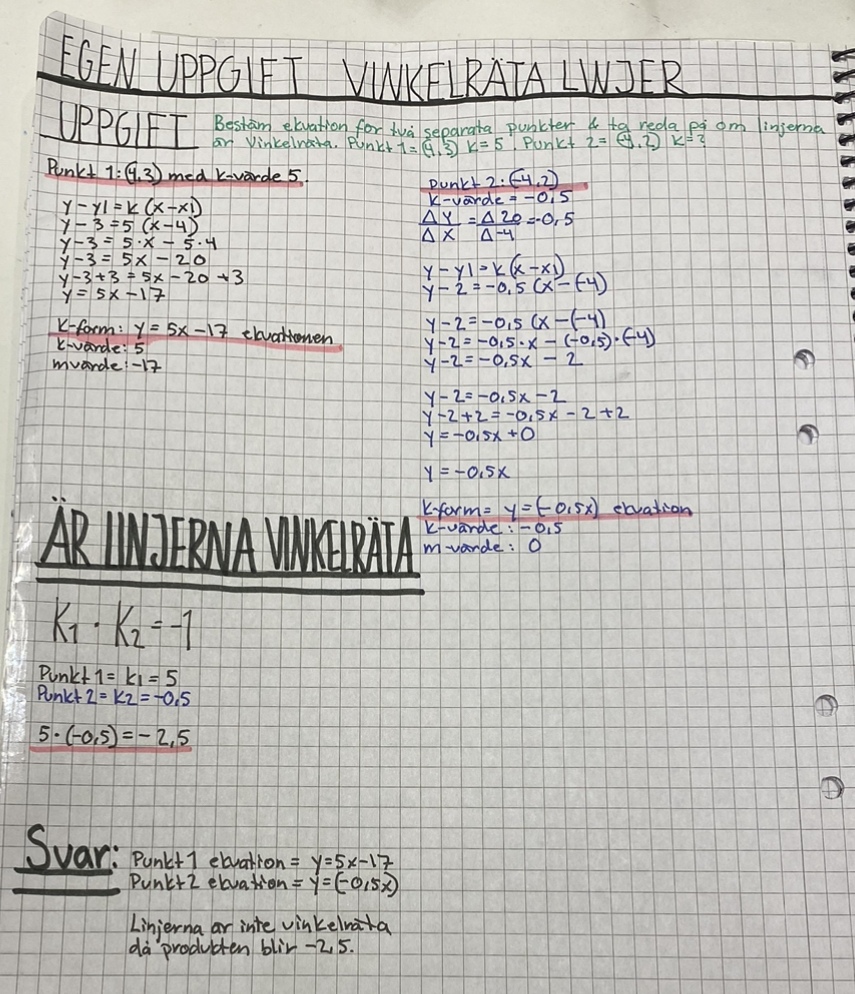 EGEN UPPGIFT VINKELRÄTA LINJER
UPPGIFT
Bestäm ekvation för två separata punkter & ta reda på om linjerna
är vinkelräta. Punkt 1 = (4,3) k=5. Punkt 2 = (-4,2) k=?
Punkt 1: (4,3) med k-värde 5.
y-y1 = k(x-x1)
y-3 = 5(x-4)
y-3 = 5·x - 5·4
y-3 = 5x - 20
y-3+3 = 5x - 20 +3
y = 5x - 17
K-form: y = 5x - 17 ekvationen
k-värde: 5
m värde: -17
punkt 2: (-4,2)
k-värde = -0,5
Δy/Δx = Δ20/Δ-4 = -0,5
y-y1 = k(x-x1)
y-2 = -0,5(x-(-4)
y-2 = -0,5(x-(-4)
y-2 = -0,5·x - (-0,5)·(-4)
y-2 = -0,5x - 2
y-2 = -0,5x - 2
y-2+2 = -0,5x - 2 + 2
y = -0,5x + 0
y = -0,5x
K-form = y = (-0,5x) ekvation
k-värde: -0,5
m-värde: 0
ÄR LINJERNA VINKELRÄTA
K₁ · K₂ = -1
Punkt 1 = k1 = 5
Punkt 2 = k2 = -0,5
5·(-0,5) = -2,5
Svar:
Punkt 1 ekvation = y=5x-17
Punkt 2 ekvation = y=(-0,5x)
Linjerna är inte vinkelräta
då produkten blir -2,5.